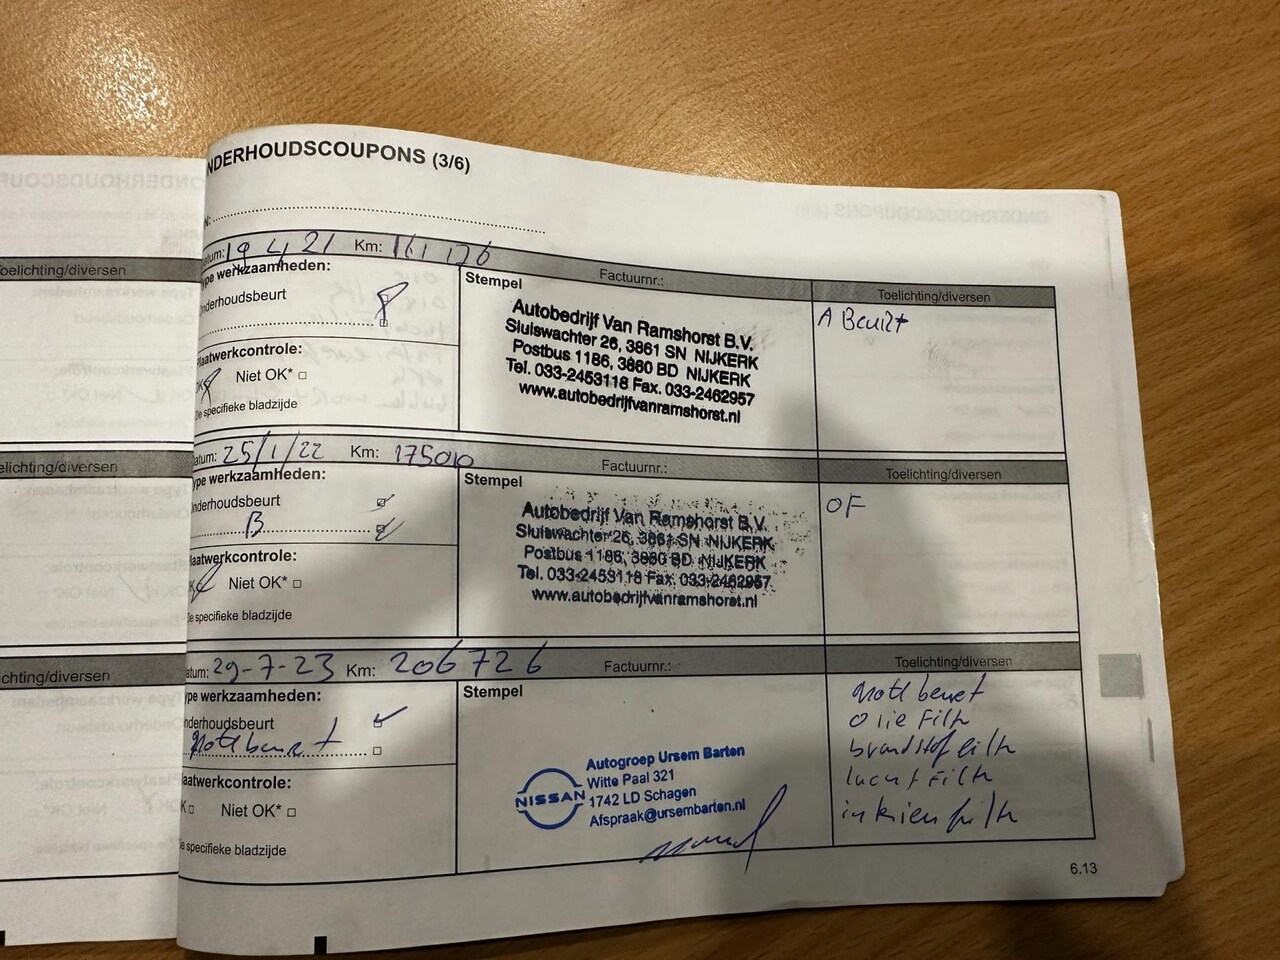 NDERHOUDSCOUPONS (3/6)
N:
atum: 19 4 21 Km: 161 126 Factuurnr.: Toelichting/diversen
ype werkzaamheden:
nderhoudsbeurt
laatwerkcontrole:
OK Niet OK* □
ie specifieke bladzijde
Stempel
Autobedrijf Van Ramshorst B.V.
Sluiswachter 26, 3861 SN NIJKERK
Postbus 1186, 3860 BD NIJKERK
Tel. 033-2453118 Fax. 033-2462957
www.autobedrijfvanramshorst.nl
A Beurt
atum: 25/1/22 Km: 175010 Factuurnr.: Toelichting/diversen
ype werkzaamheden:
nderhoudsbeurt
B
laatwerkcontrole:
K Niet OK* □
ie specifieke bladzijde
Stempel
Autobedrijf Van Ramshorst B.V.
Sluiswachter 26, 3861 SN NIJKERK
Postbus 1186, 3860 BD NIJKERK
Tel. 033-2453118 Fax. 033-2462957
www.autobedrijfvanramshorst.nl
OF
atum: 29-7-23 Km: 206726 Factuurnr.: Toelichting/diversen
ype werkzaamheden:
nderhoudsbeurt
laatwerkcontrole:
K □ Niet OK* □
ie specifieke bladzijde
Stempel
NISSAN
Autogroep Ursem Barten
Witte Paal 321
1742 LD Schagen
Afspraak@ursembarten.nl
beurt
olie Filtr
brandstoffiltr
lucht Filtr
interieur filtr
6.13
Toelichting/diversen
elichting/diversen
ichting/diversen